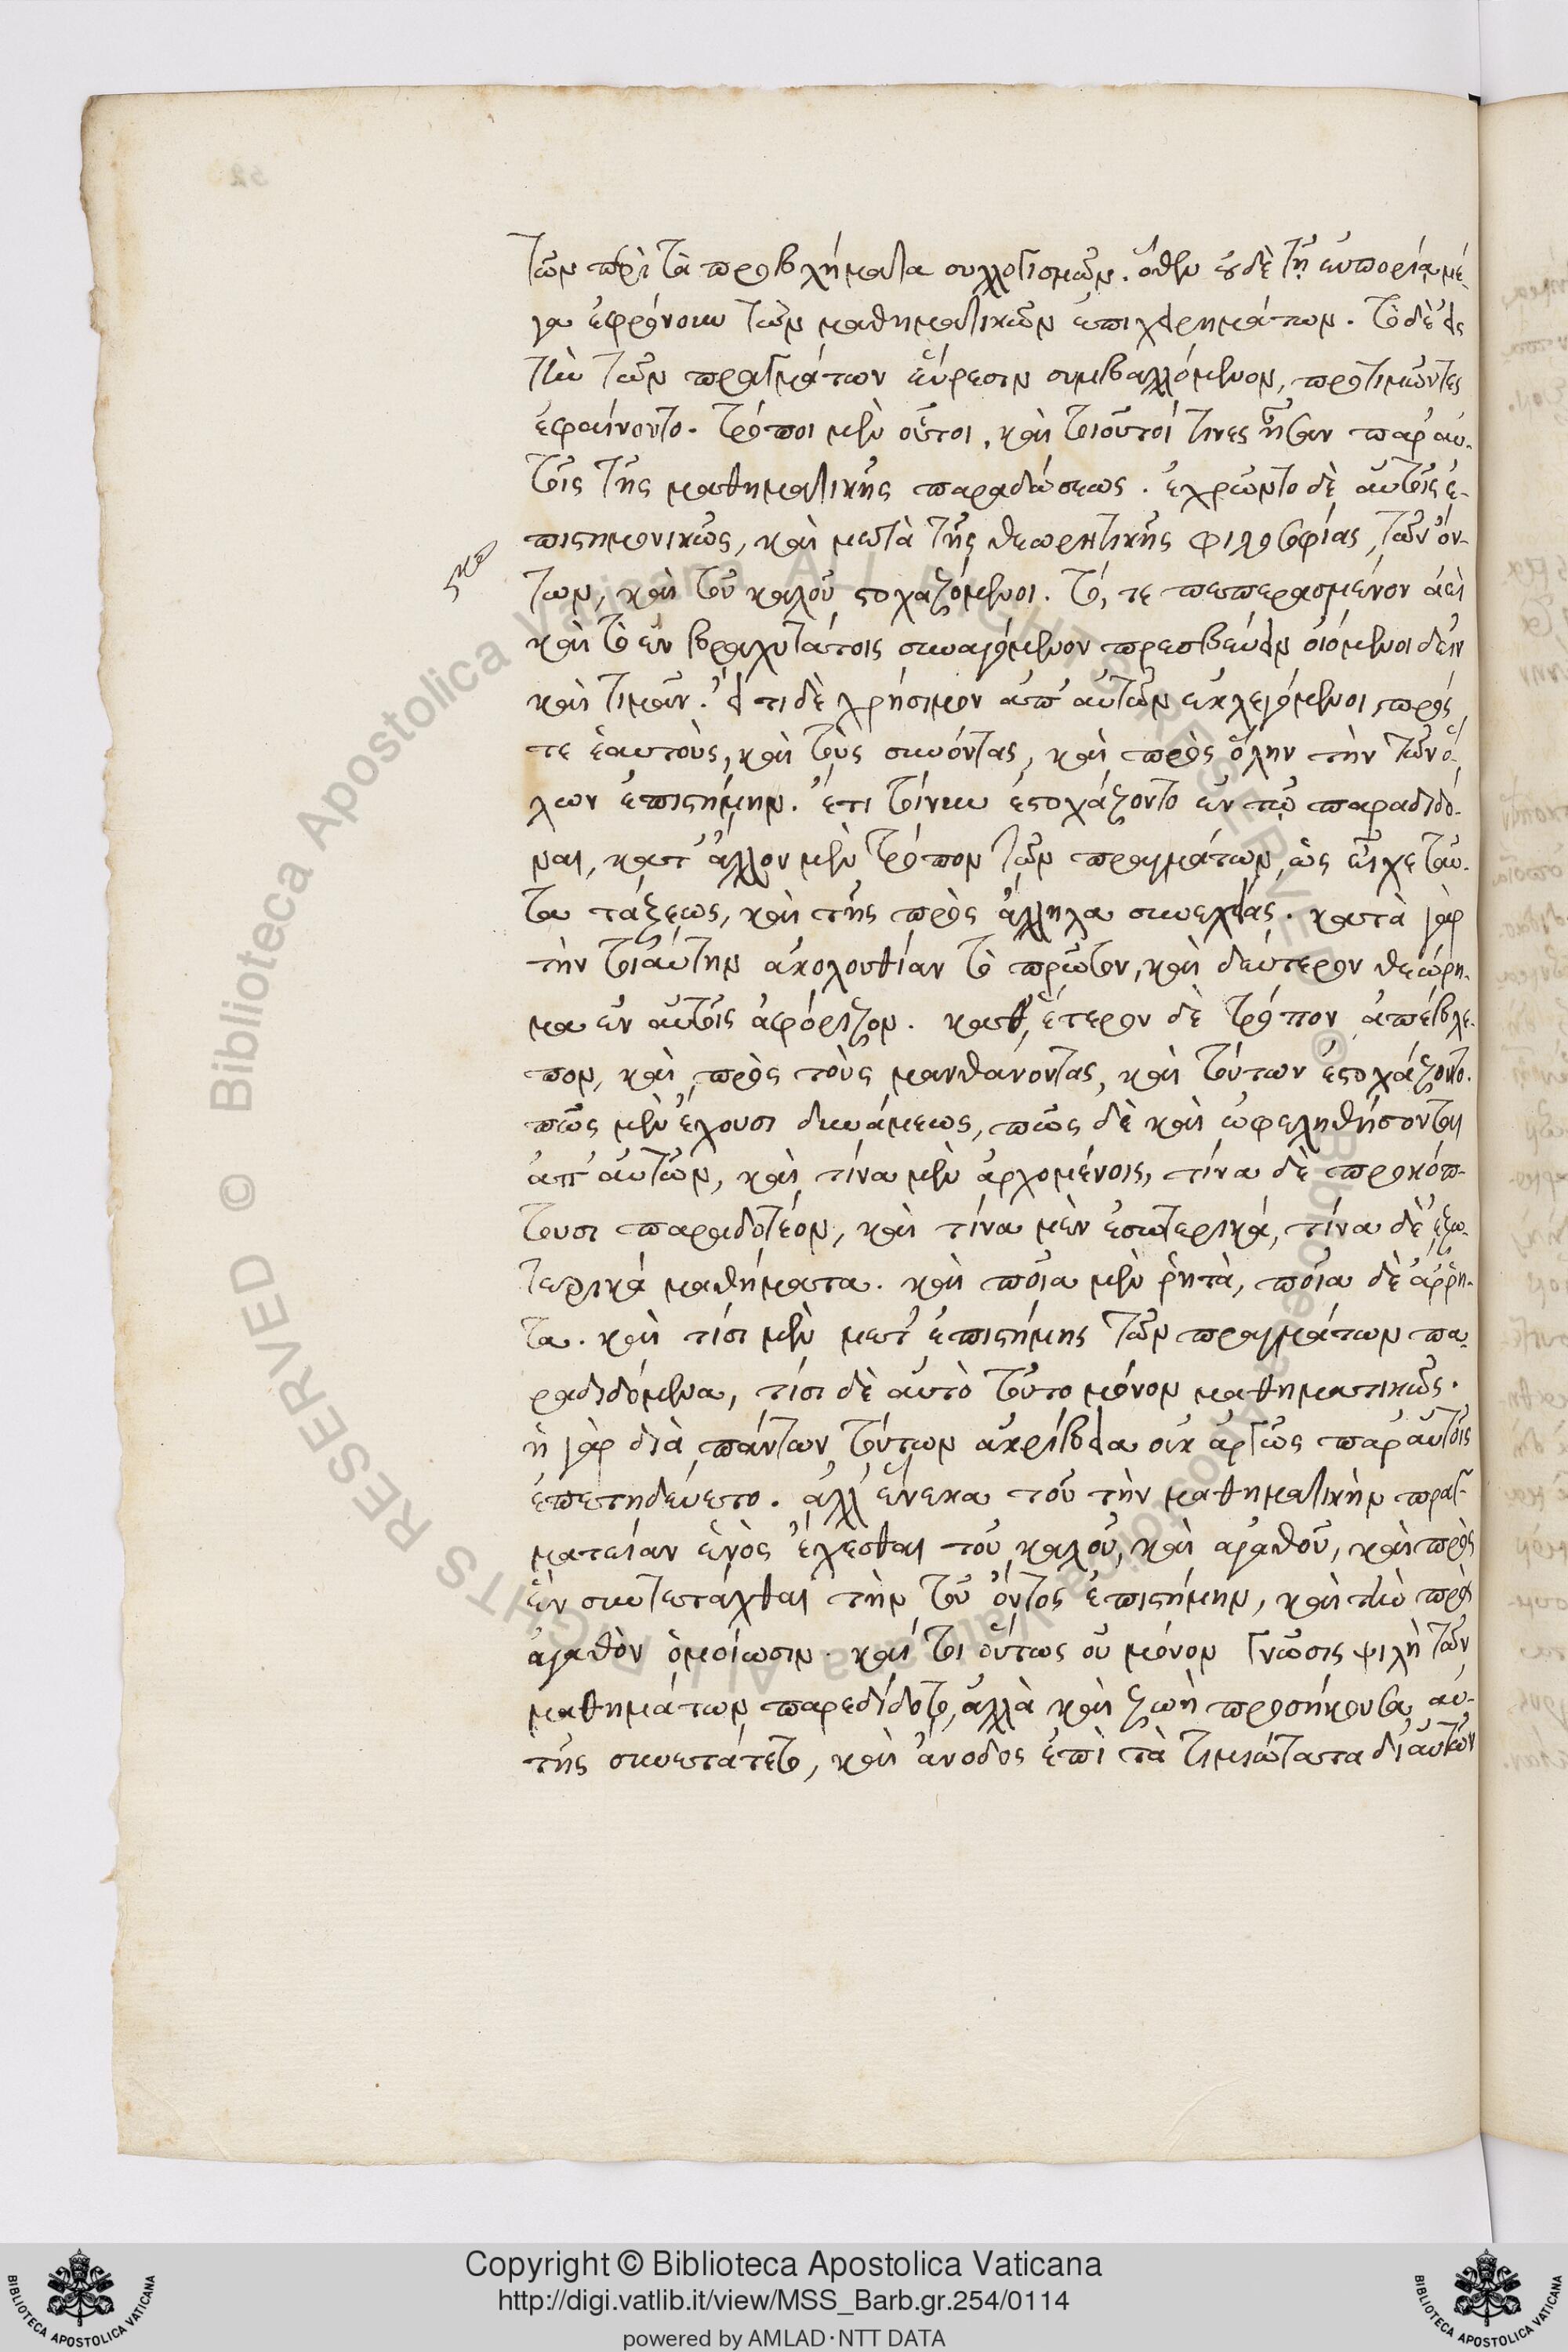 τῶν περὶ τὰ προβλήματα συλλογισμῶν. ὅθεν οὐδὲ τῇ εὐπορίᾳ μέ-
γα ἐφρόνουν τῶν μαθηματικῶν ἐπιχειρημάτων. τὸ δὲ εἰς
τὴν τῶν πραγμάτων εὕρεσιν συμβαλλόμενον, προτιμῶντες
ἐφαίνοντο. τρόποι μὲν οὗτοι, καὶ τοιοῦτοί τινες ἦσαν παρ' αὐ-
τοῖς τῆς μαθηματικῆς παραδώσεως. ἐχρῶντο δὲ αὐτοῖς ἐ-
πιστημονικῶς, καὶ μετὰ τῆς θεωρητικῆς φιλοσοφίας, τῶν ὄν-
των, καὶ τοῦ καλοῦ στοχαζόμενοι. τό, τε πεπερασμένον ἀεὶ
καὶ τὸ ἐν βραχυτάτοις συναγόμενον πρεσβεύειν οἰόμενοι δεῖν
καὶ τιμᾶν. εἴ τι δὲ χρήσιμον ἀπ' αὐτῶν ἐκλεγόμενοι πρός
τε ἑαυτοὺς, καὶ τοὺς συνόντας, καὶ πρὸς ὅλην τὴν τῶν ὅ-
λων ἐπιστήμην. ἔτι τοίνυν ἐστοχάζοντο ἐν τῷ παραδιδό-
ναι, κατ' ἄλλον μὲν τρόπον τῶν πραγμάτων, ὡς εἶχε ταῦ-
τα τάξεως, καὶ τῆς πρὸς ἄλληλα συνεχείας. κατὰ γὰρ
τὴν τοιαύτην ἀκολουθίαν τὸ πρῶτον, καὶ δεύτερον θεώρη-
μα ἐν αὐτοῖς ἀφόριζον. καθ' ἕτερον δὲ τρόπον ἀπέβλε-
πον, καὶ πρὸς τοὺς μανθάνοντας, καὶ τούτων ἐστοχάζοντο.
πῶς μὲν ἔχουσι δυνάμεως, πῶς δὲ καὶ ὠφεληθήσονται
ἀπ' αὐτῶν, καὶ τίνα μὲν ἀρχομένοις, τίνα δὲ προκόπ-
τουσι παραδοτέον, καὶ τίνα μὲν ἐσωτερικά, τίνα δὲ ἐξω-
τερικά μαθήματα. καὶ ποῖα μὲν ῥητὰ, ποῖα δὲ ἄῤῥη-
τα. καὶ τίσι μὲν μετ' ἐπιστήμης τῶν πραγμάτων πα-
ραδιδόμενα, τίσι δὲ αὐτὸ τοῦτο μόνον μαθηματικῶς.
ἡ γὰρ διὰ πάντων τούτων ἀκρίβεια οὐκ ἀργῶς παρ' αὐτοῖς
ἐπετηδεύετο. ἀλλ' ἕνεκα τοῦ τὴν μαθηματικὴν πραγ-
ματείαν ἑνὸς ἔχεσθαι τοῦ καλοῦ, καὶ ἀγαθοῦ, καὶ πρὸς
ἓν συντετάχθαι τὴν τοῦ ὄντος ἐπιστήμην, καὶ τὴν πρὸς
ἀγαθὸν ὁμοίωσιν. καί τοι οὕτως οὐ μόνον γνῶσις ψιλὴ τῶν
μαθημάτων παρεδίδοτο, ἀλλὰ καὶ ζωὴ προσήκουσα αὐ-
τῆς συνετάτετο, καὶ ἄνοδος ἐπὶ τὰ τιμιώτατα δι' αὐτῶν
Copyright © Biblioteca Apostolica Vaticana
http://digi.vatlib.it/view/MSS_Barb.gr.254/0114
powered by AMLAD·NTT DATA